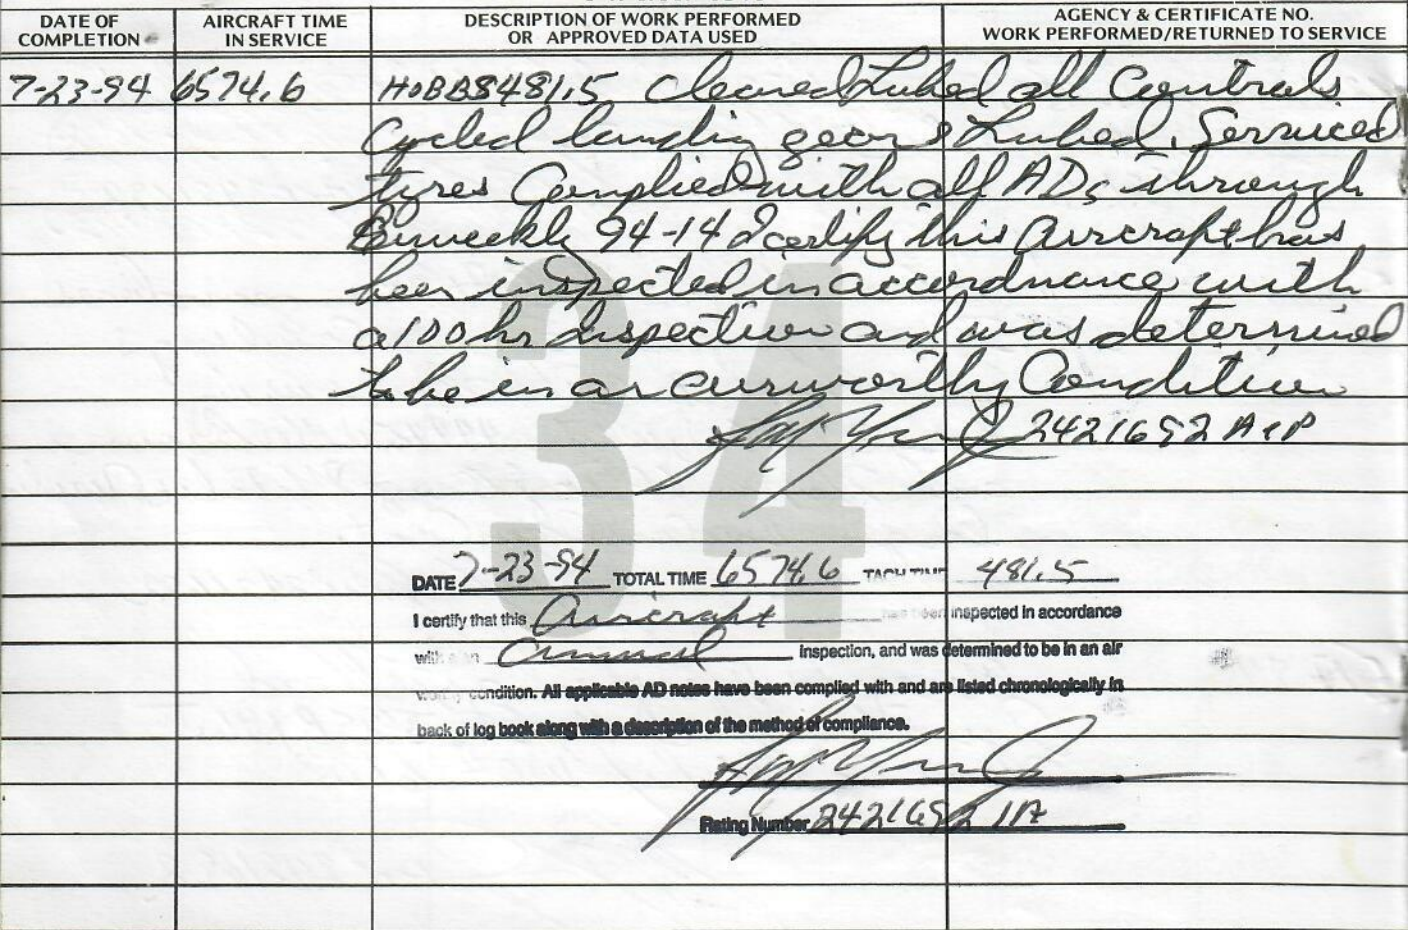 DATE OF COMPLETION
AIRCRAFT TIME IN SERVICE
DESCRIPTION OF WORK PERFORMED OR APPROVED DATA USED
AGENCY & CERTIFICATE NO. WORK PERFORMED/RETURNED TO SERVICE
7-23-94 6574.6 HOBBS481.5 Cleaned Lubed all Controls
Cycled landing gear & Lubed. Serviced
tyres Complied with all ADs through
Biweekly 94-14 I certify this Aircraft has
been inspected in accordance with
a 100 hr Inspection and was determined
to be in an airworthy Condition
2421692 A&P
34
DATE 7-23-94 TOTAL TIME 6574.6 TACH TIME 481.5
I certify that this Aircraft has been inspected in accordance
with a an Annual inspection, and was determined to be in an air
worthy condition. All applicable AD notes have been complied with and are listed chronologically in
back of log book along with a description of the method of compliance.
Rating Number 2421692 IA